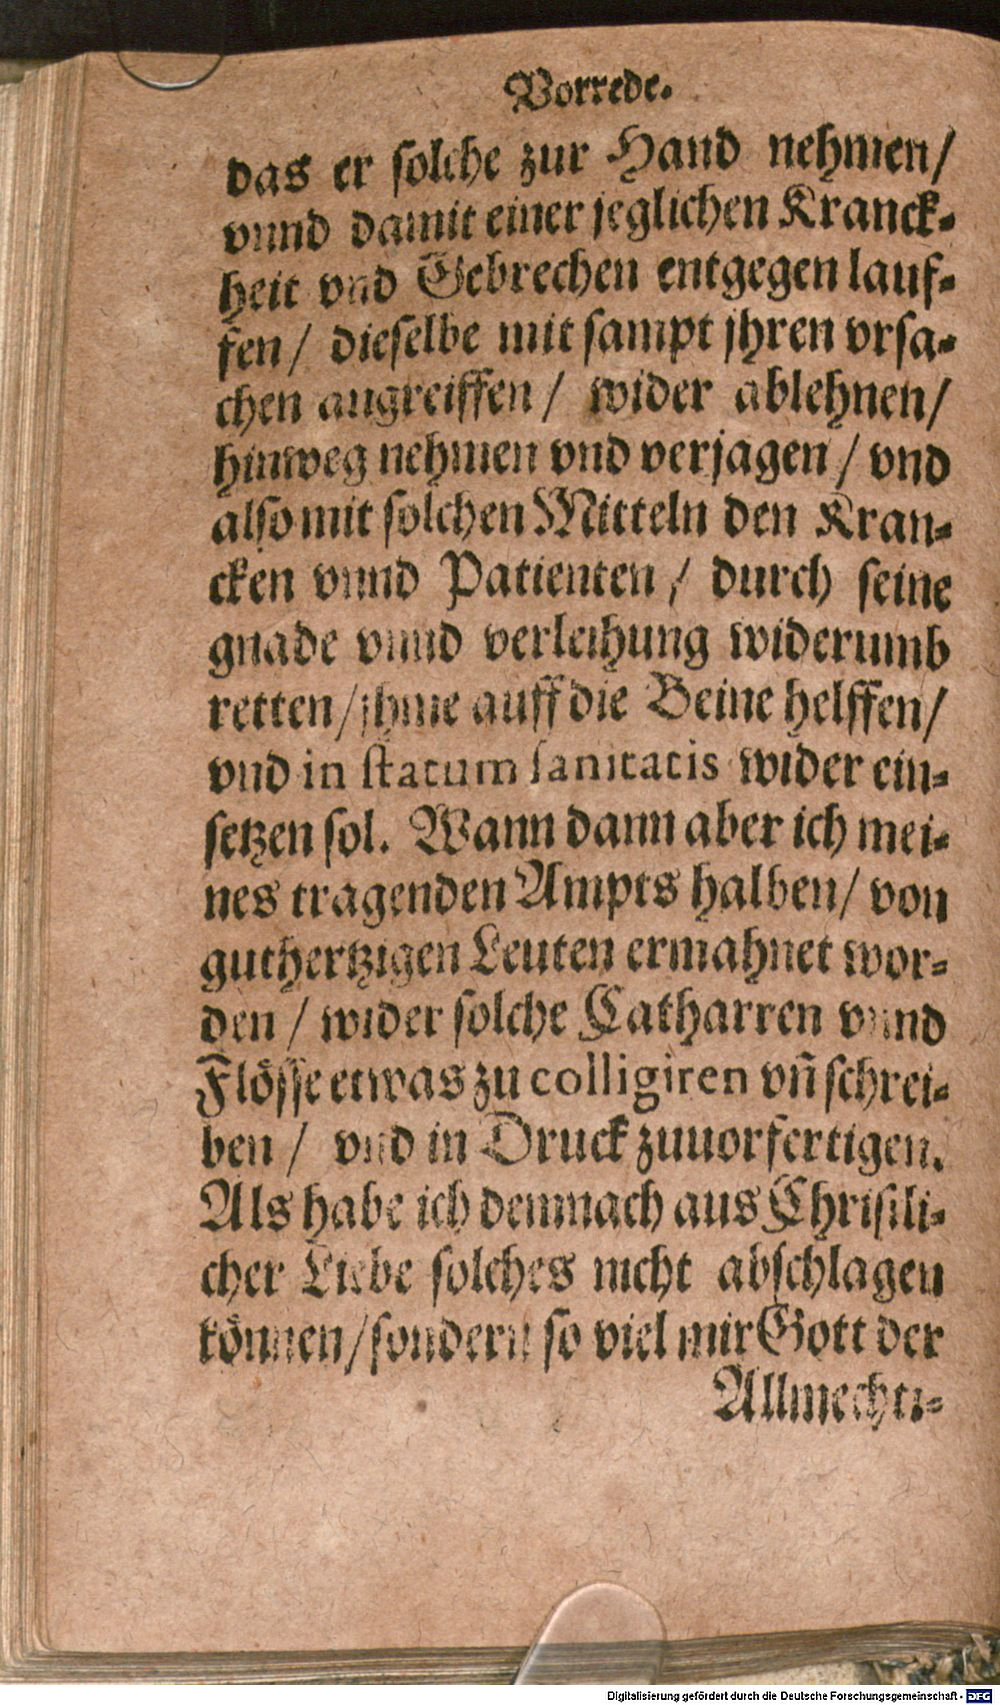 Vorrede.
das er solche zur Hand nehmen/
vnnd damit einer jeglichen Kranck-
heit vnd Gebrechen entgegen lauf-
fen/ dieselbe mit sampt jhren vrsa-
chen angreiffen/ wider ablehnen/
hinweg nehmen vnd verjagen/ vnd
also mit solchen Mitteln den Kran-
cken vnnd Patienten/ durch seine
gnade vnnd verleihung widerumb
retten/ jhme auff die Beine helffen/
vnd in statum sanitatis wider ein-
setzen sol. Wann dann aber ich mei-
nes tragenden Ampts halben/ von
guthertzigen Leuten ermahnet wor-
den/ wider solche Catharren vnnd
Flösse etwas zu colligiren vñ schrei-
ben/ vnd in Druck zuuorfertigen.
Als habe ich demnach aus Christli-
cher Liebe solches nicht abschlagen
können/ sondern so viel mir Gott der
Allmechti-
Digitalisierung gefördert durch die Deutsche Forschungsgemeinschaft - DFG